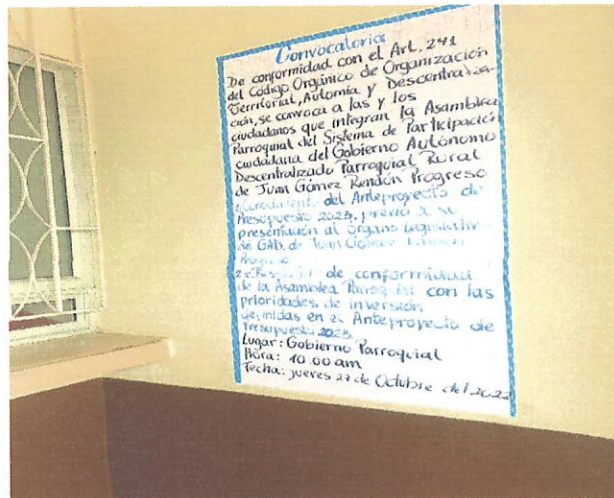 Convocatoria
De conformidad con el Art. 241
del Código Orgánico de Organización
Territorial, Automia y Descentraliza-
ción, se convoca a las y los
ciudadanos que integran la Asamblea
Parroquial del Sistema de Participación
ciudadana del Gobierno Autónomo
Descentralizado Parroquial Rural
de Juan Gómez Rendón Progreso
del Anteproyecto de
Presupuesto 2023, previo a su
presentación al órgano Legislativo
de GAD. de Juan Gómez Rendón
Progreso
de conformidad
de la Asamblea Parroquial con las
prioridades de inversión
definidas en el Anteproyecto de
Presupuesto 2023.
Lugar: Gobierno Parroquial
Hora: 10:00 am
Fecha: jueves 27 de Octubre del 2022